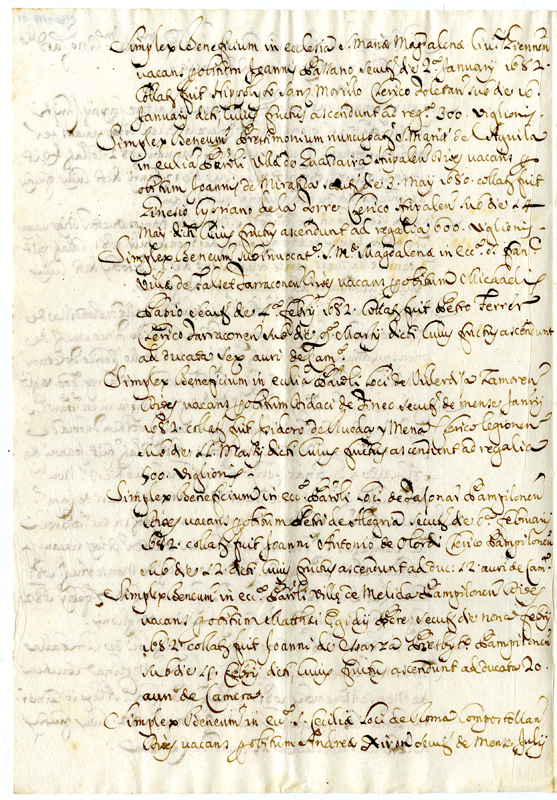 Simplex Beneficium in ecclesia S. Mariæ Magdalenæ Civ. Ziennen
vacan. p obitum Joannis Bassano secuť die 2. Januarij 1682.
Collať fuit Clerico Toletan. sub die 16.
Januarij dicti cuius fructus ascendunt ad reg. 300. Viglionis.
Simplex Beneum Prestimonium nuncupať
in ecclia Parli Villæ de Hispalen Dices vacans p
obitum Joannis de secuť die 3. Maij 1680. collať fuit
Genesio Cypriano de la Torre Clerico Hispalen sub die 24
Maij dicti cuius fructus ascendunt ad regalia 600. Viglionis.
Simplex Beneum sub invocat. S. Mæ Magdalena in ecc.
Villæ de Falset Tarraconen Dices vacans p obitum Michaelis
secuť die 4. Febrij 1682. collať fuit Petro Ferrer
Clerico Tarraconen sub die 9. Martij dicti cuius fructus ascendunt
ad ducata sex auri de Cam.
Simplex Beneficium in ecclia Parli Loci de Zamoren
Dices vacans p obitum Didaci de secuť de mense Janrij
1682. collať fuit Isidoro de Rueda y Mena Clerico Legionen
sub die 22. Martij dicti cuius fructus ascendunt ad regalia
500. Viglionis.
Simplex Beneficium in ecc. Parli Loci de Pampilonen
Dices vacans p obitum Petri de Alegria secuť die 6. Februarij
1682. collať fuit Joanni Antonio de Clerico Pampilonen
sub die 22. dicti cuius fructus ascendunt ad duc. 12. auri de Cam.
Simplex Beneum in ecc. Parli Villæ de Melida Pampilonen Dices
vacans p obitum Matthei secuť die nona Februarij
1682. collať fuit Joanni de Presbyte. Pampilonen
sub die 25. Febrij dicti cuius fructus ascendunt ad ducata 20.
auri de Camera.
Simplex Beneum in ecc. S. Ceciliæ Loci de Roma Compostellan
Dices vacans p obitum Andreæ secuť de Mense Julij